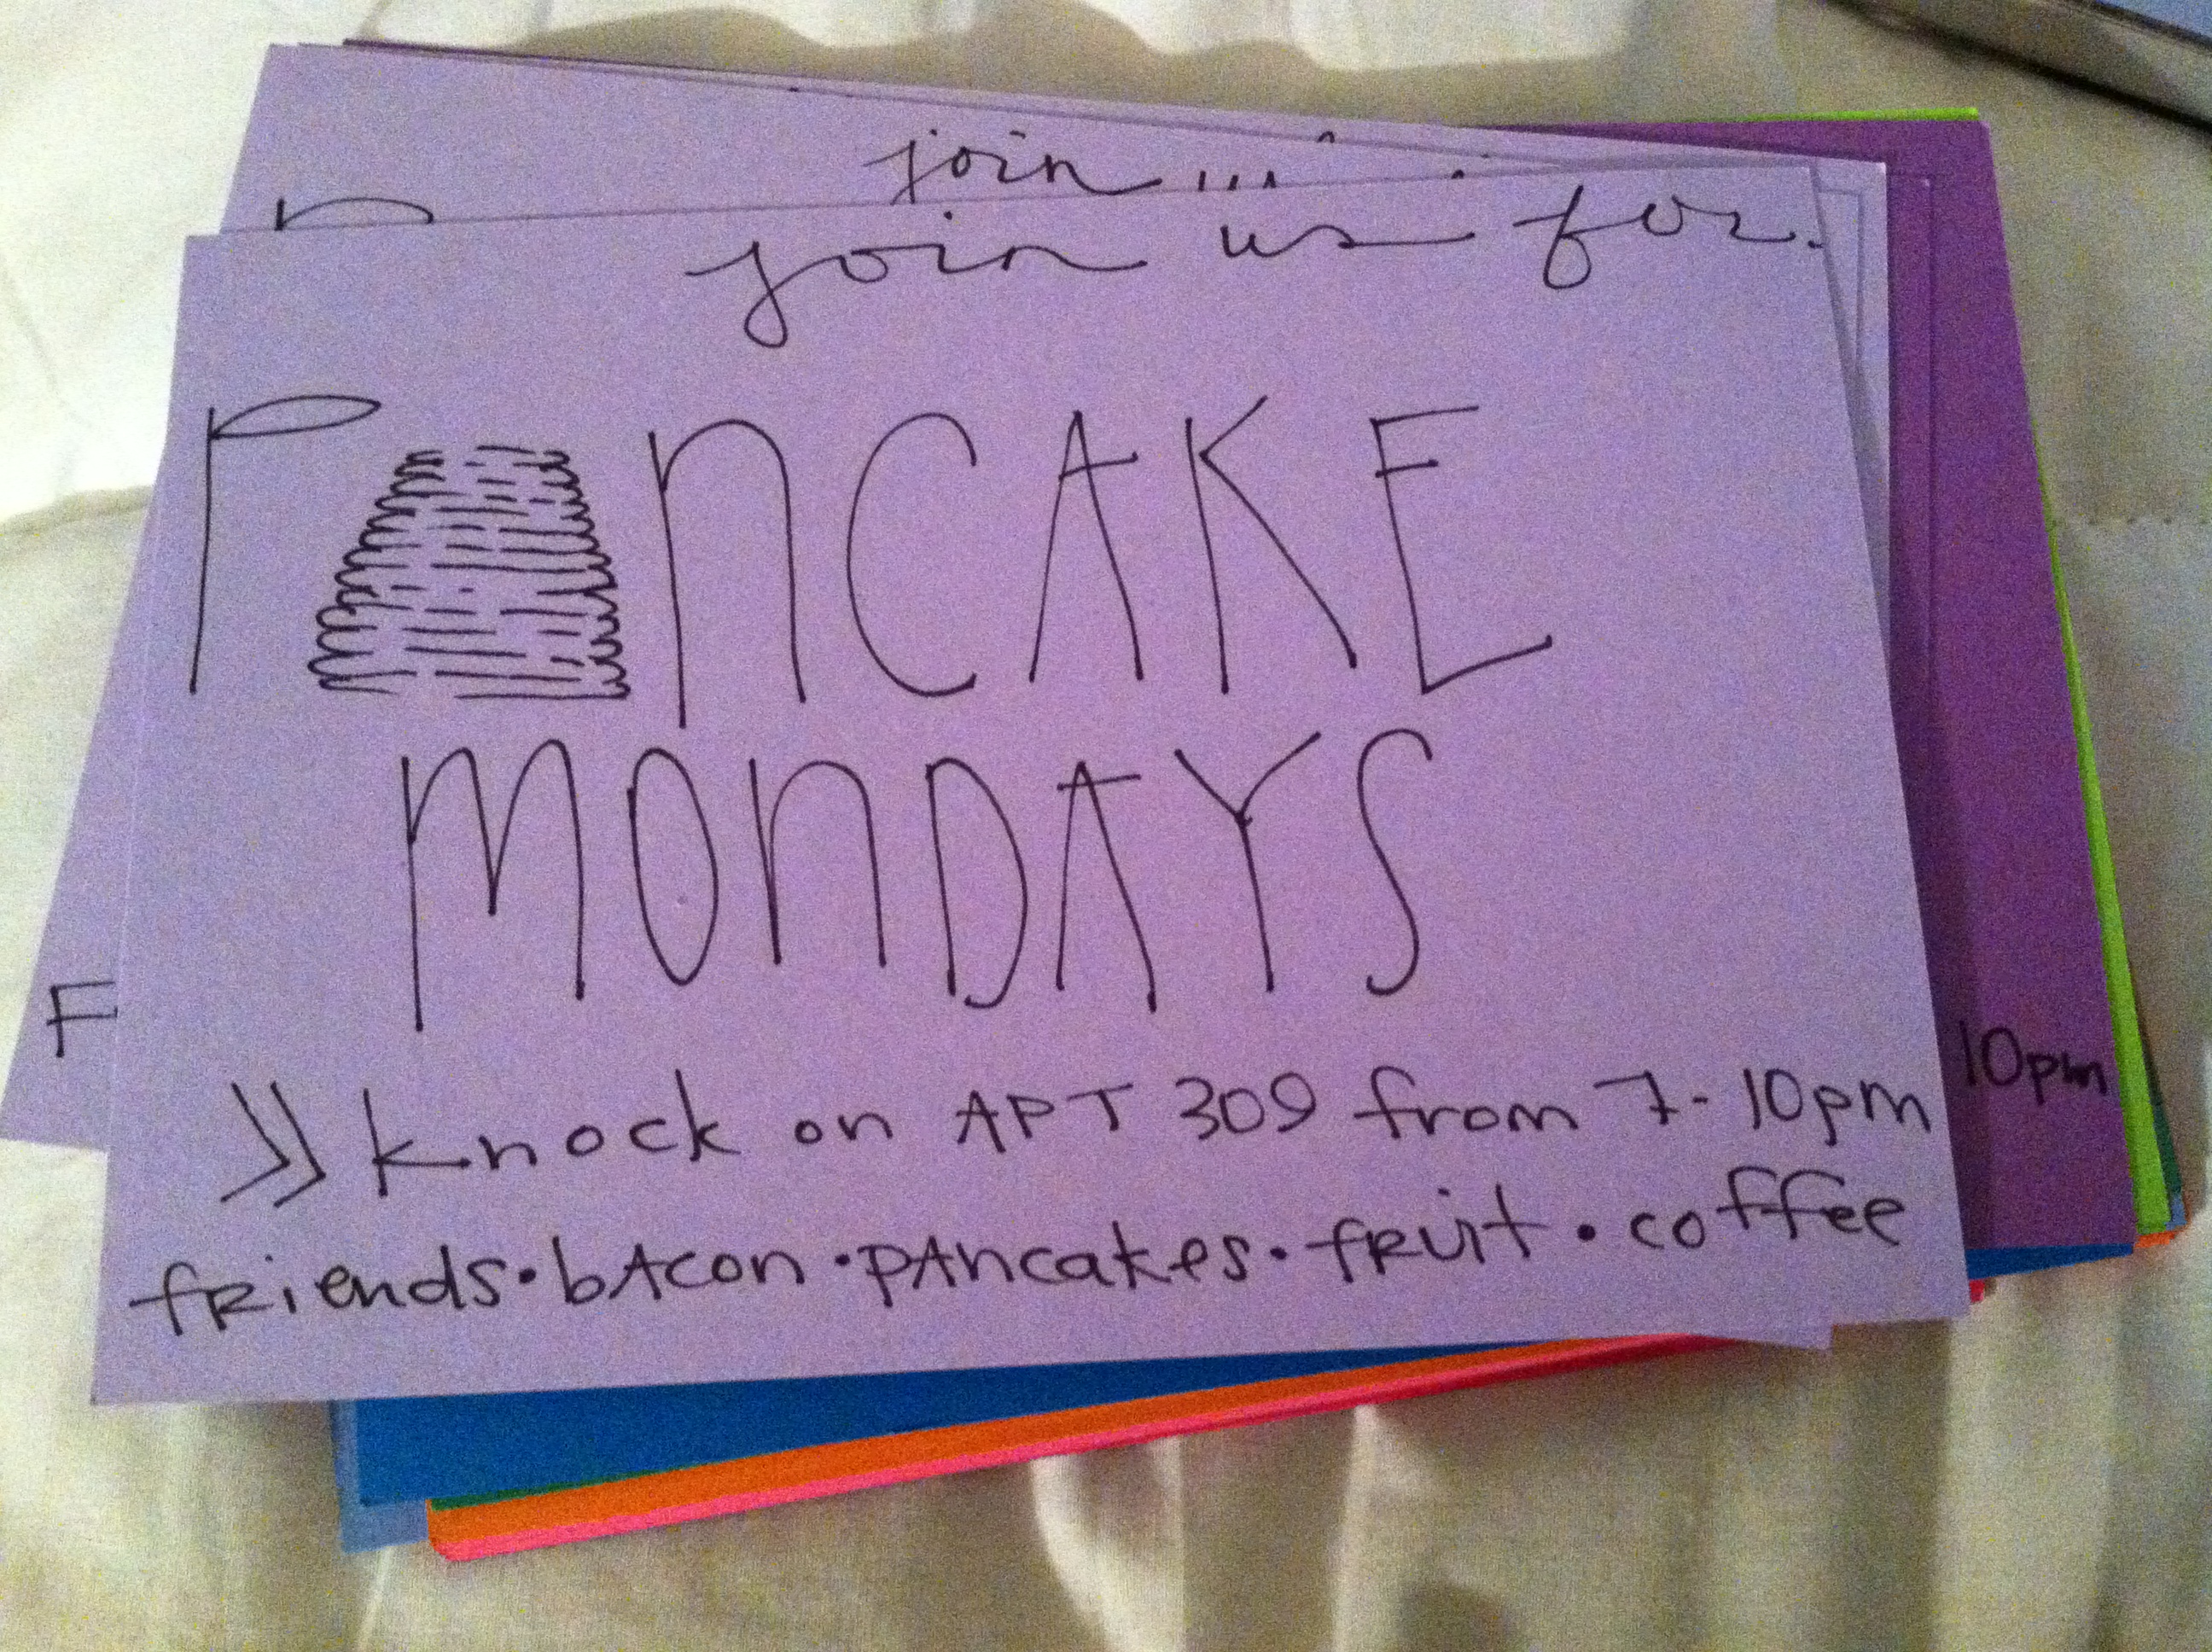 join
join us for.
PANCAKE
MONDAYS
>> knock on APT 309 from 7-10pm
friends • bAcon • pAncakes • fruit • coffee
F
10pm